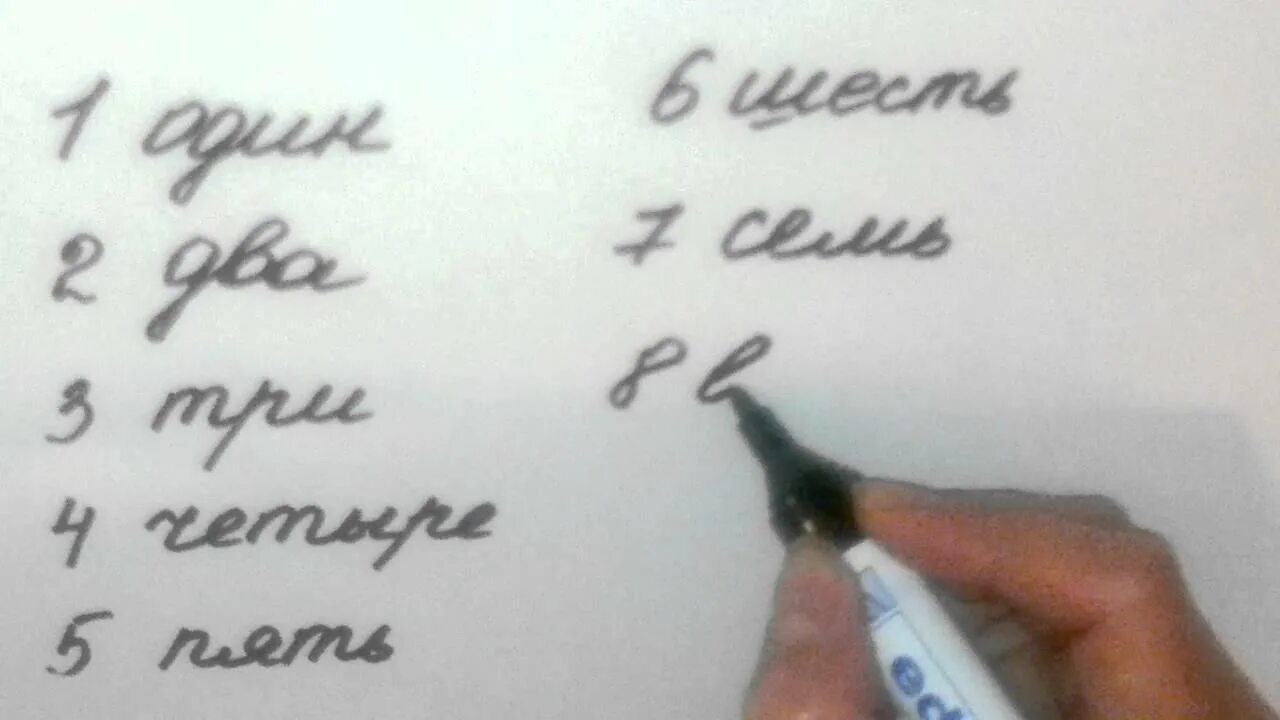 1 один
2 два
3 три
4 четыре
5 пять
6 шесть
7 семь
8 в
ed